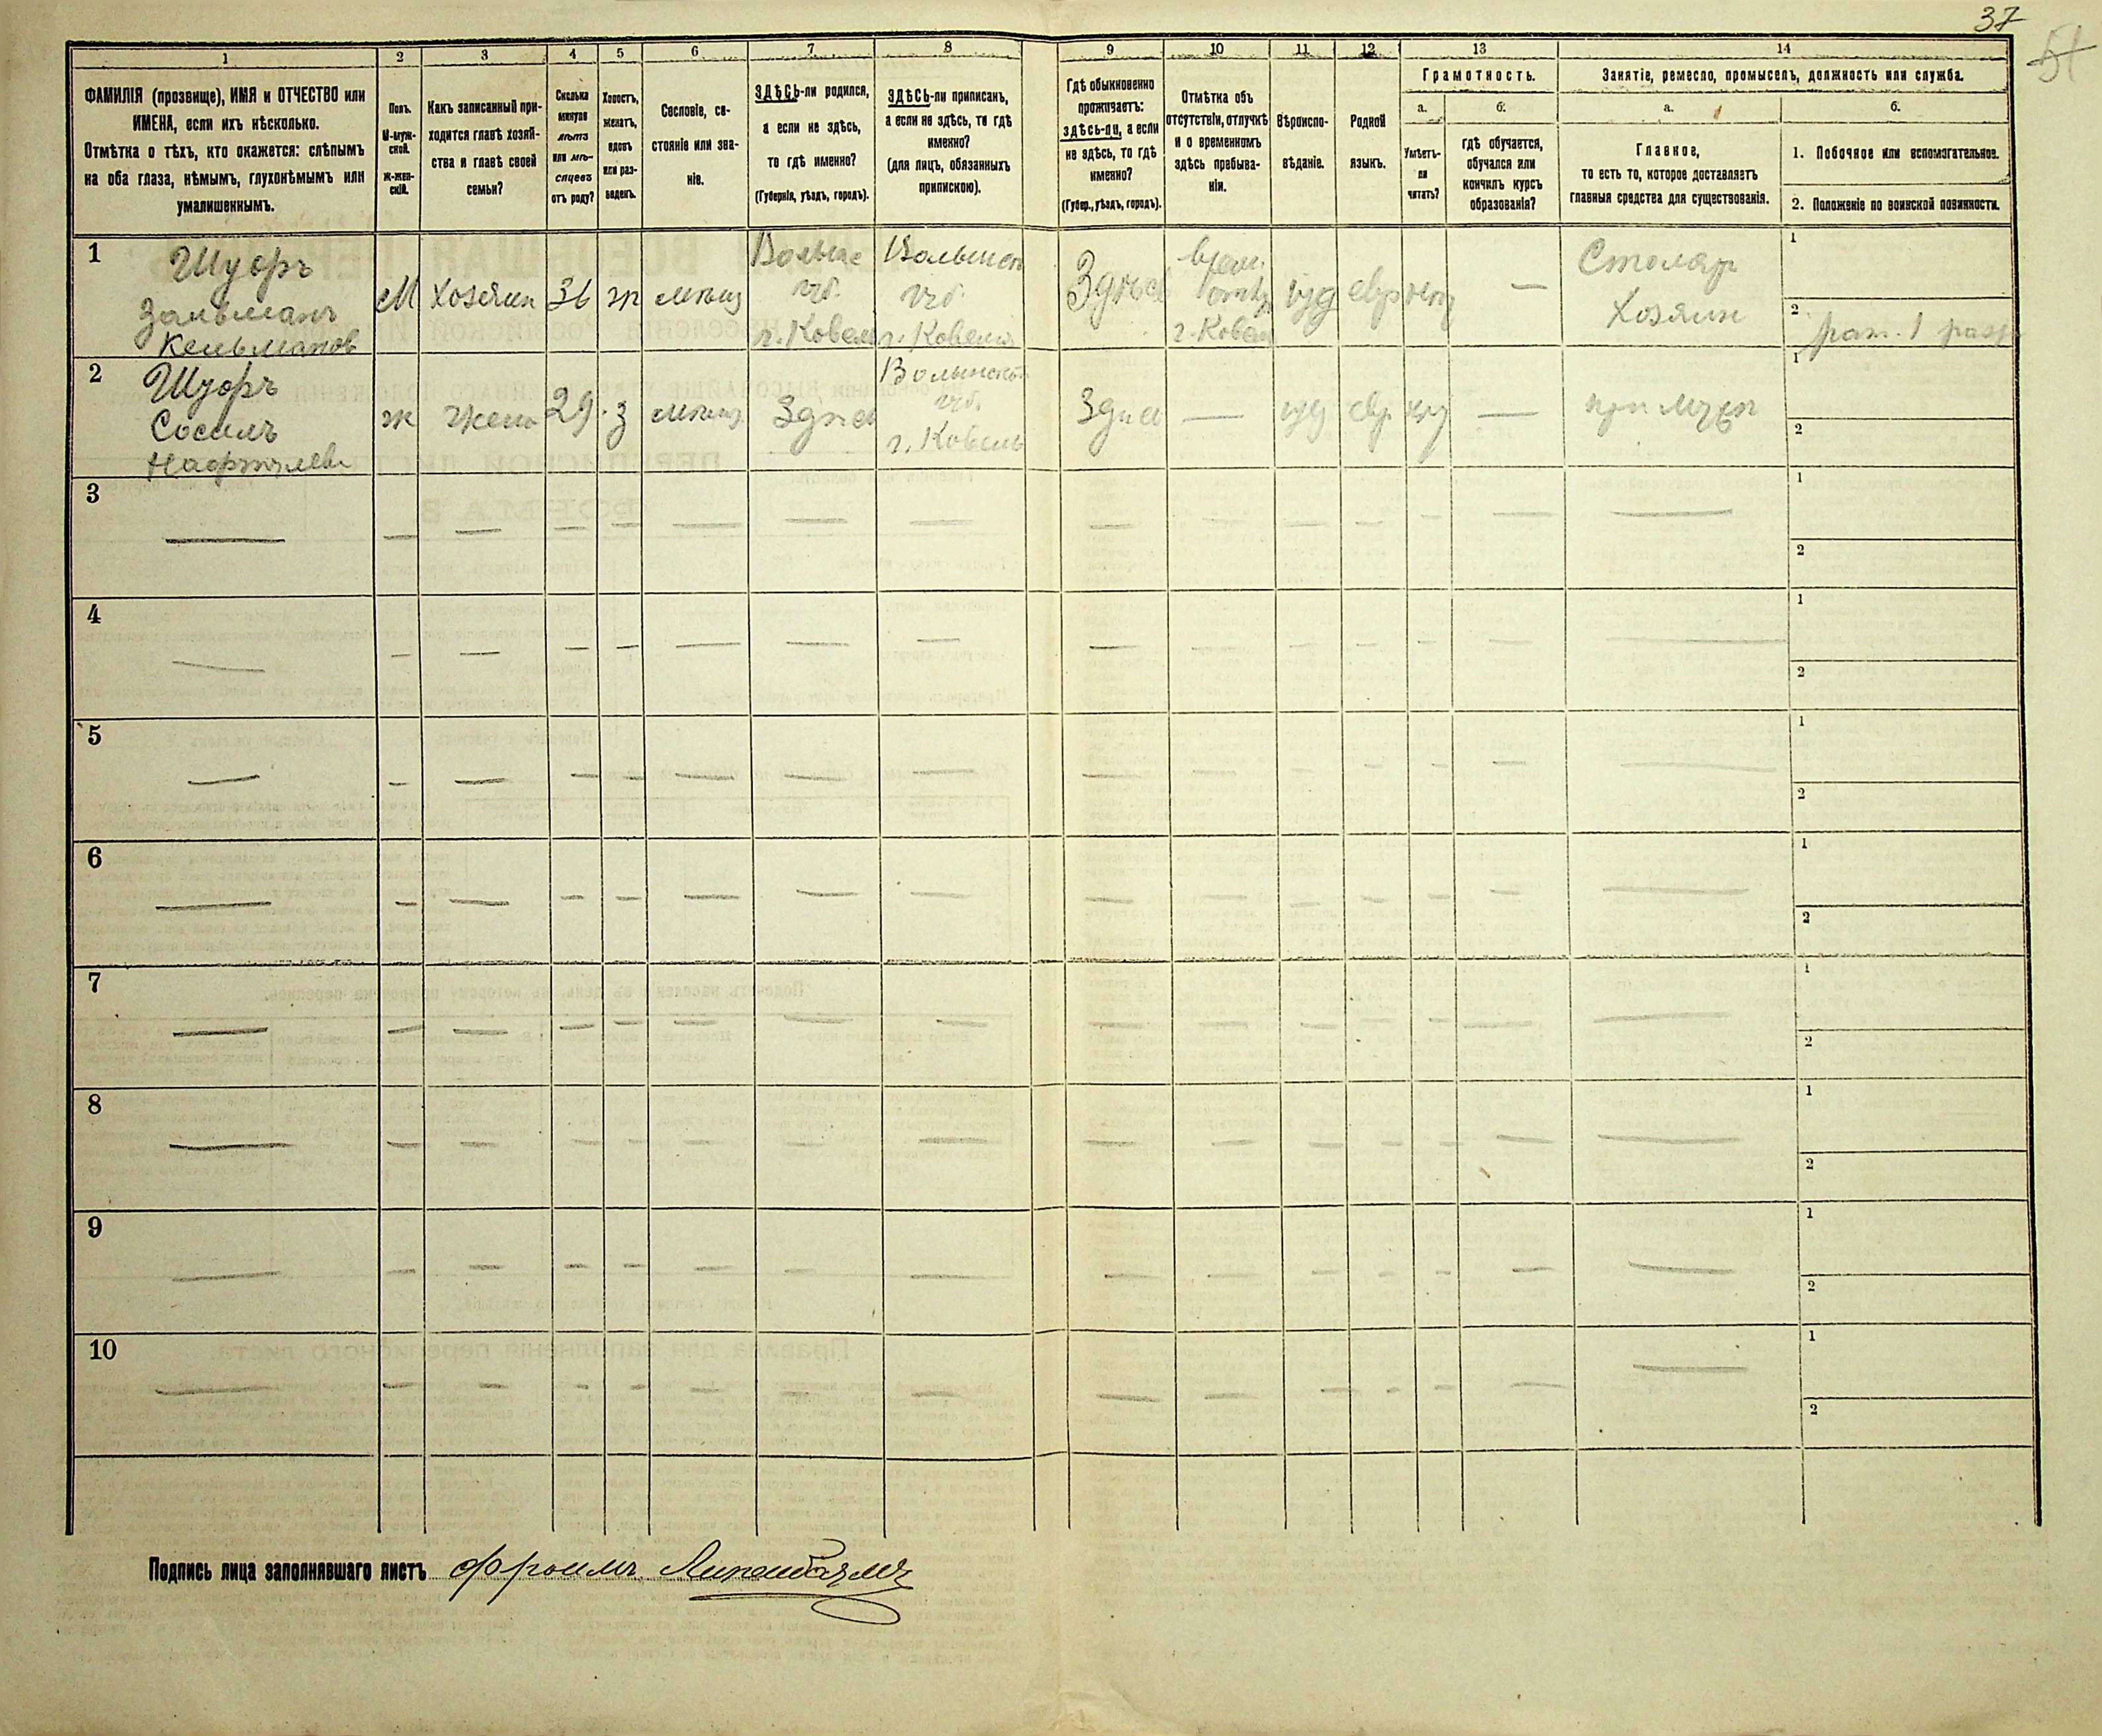 37
51
1 2 3 4 5 6 7 8 9 10 11 12 13 14
ФАМИЛІЯ (прозвище), ИМЯ и ОТЧЕСТВО или
ИМЕНА, если ихъ нѣсколько.
Отмѣтка о тѣхъ, кто окажется: слѣпымъ
на оба глаза, нѣмымъ, глухонѣмымъ или
умалишеннымъ.
Полъ.
М-муж-
ской.
Ж-жен-
скій.
Какъ записанный при-
ходится главѣ хозяй-
ства и главѣ своей
семьи?
Сколько
минуло
лѣтъ
или мѣ-
сяцевъ
отъ роду?
Холостъ,
женатъ,
вдовъ
или раз-
веденъ.
Сословіе, со-
стояніе или зва-
ніе.
ЗДѢСЬ-ли родился,
а если не здѣсь,
то гдѣ именно?
(Губернія, уѣздъ, городъ).
ЗДѢСЬ-ли приписан,
а если не здѣсь, то гдѣ
именно?
(для лицъ, обязанныхъ
припискою).
Гдѣ обыкновенно
проживаетъ:
здѣсь-ли, а если
не здѣсь, то гдѣ
именно?
(Губер., уѣздъ, городъ).
Отмѣтка объ
отсутствіи, отлучкѣ
и о временномъ
здѣсь пребыва-
ніи.
Вѣроиспо-
вѣданіе.
Родной
языкъ.
Грамотность.
а.
Умѣетъ-
ли
читать?
б.
гдѣ обучается,
обучался или
кончилъ курсъ
образованія?
Занятіе, ремесло, промыселъ, должность или служба.
а.
Главное,
то есть то, которое доставляетъ
главныя средства для существованія.
б.
1. Побочное или вспомогательное.
2. Положеніе по воинской повинности.
1
Шуоръ
Зальманъ
Кельманов
М
хозяин
36
ж
мѣщ
г. Ковель
Волынск
губ.
г. Ковель
Здѣсь
г. Ковель
іуд
евр
—
Столяр
Хозяин
1
2
1 разр
2
Шуоръ
Сосиль
ж
жена
29
з
мѣщ
Здѣсь
Волынской
губ.
г. Ковель
Здѣсь
—
іуд
евр
—
при мужѣ
1
2
3
1
2
4
1
2
5
1
2
6
1
2
7
1
2
8
1
2
9
1
2
10
1
2
Подпись лица заполнявшаго листъ